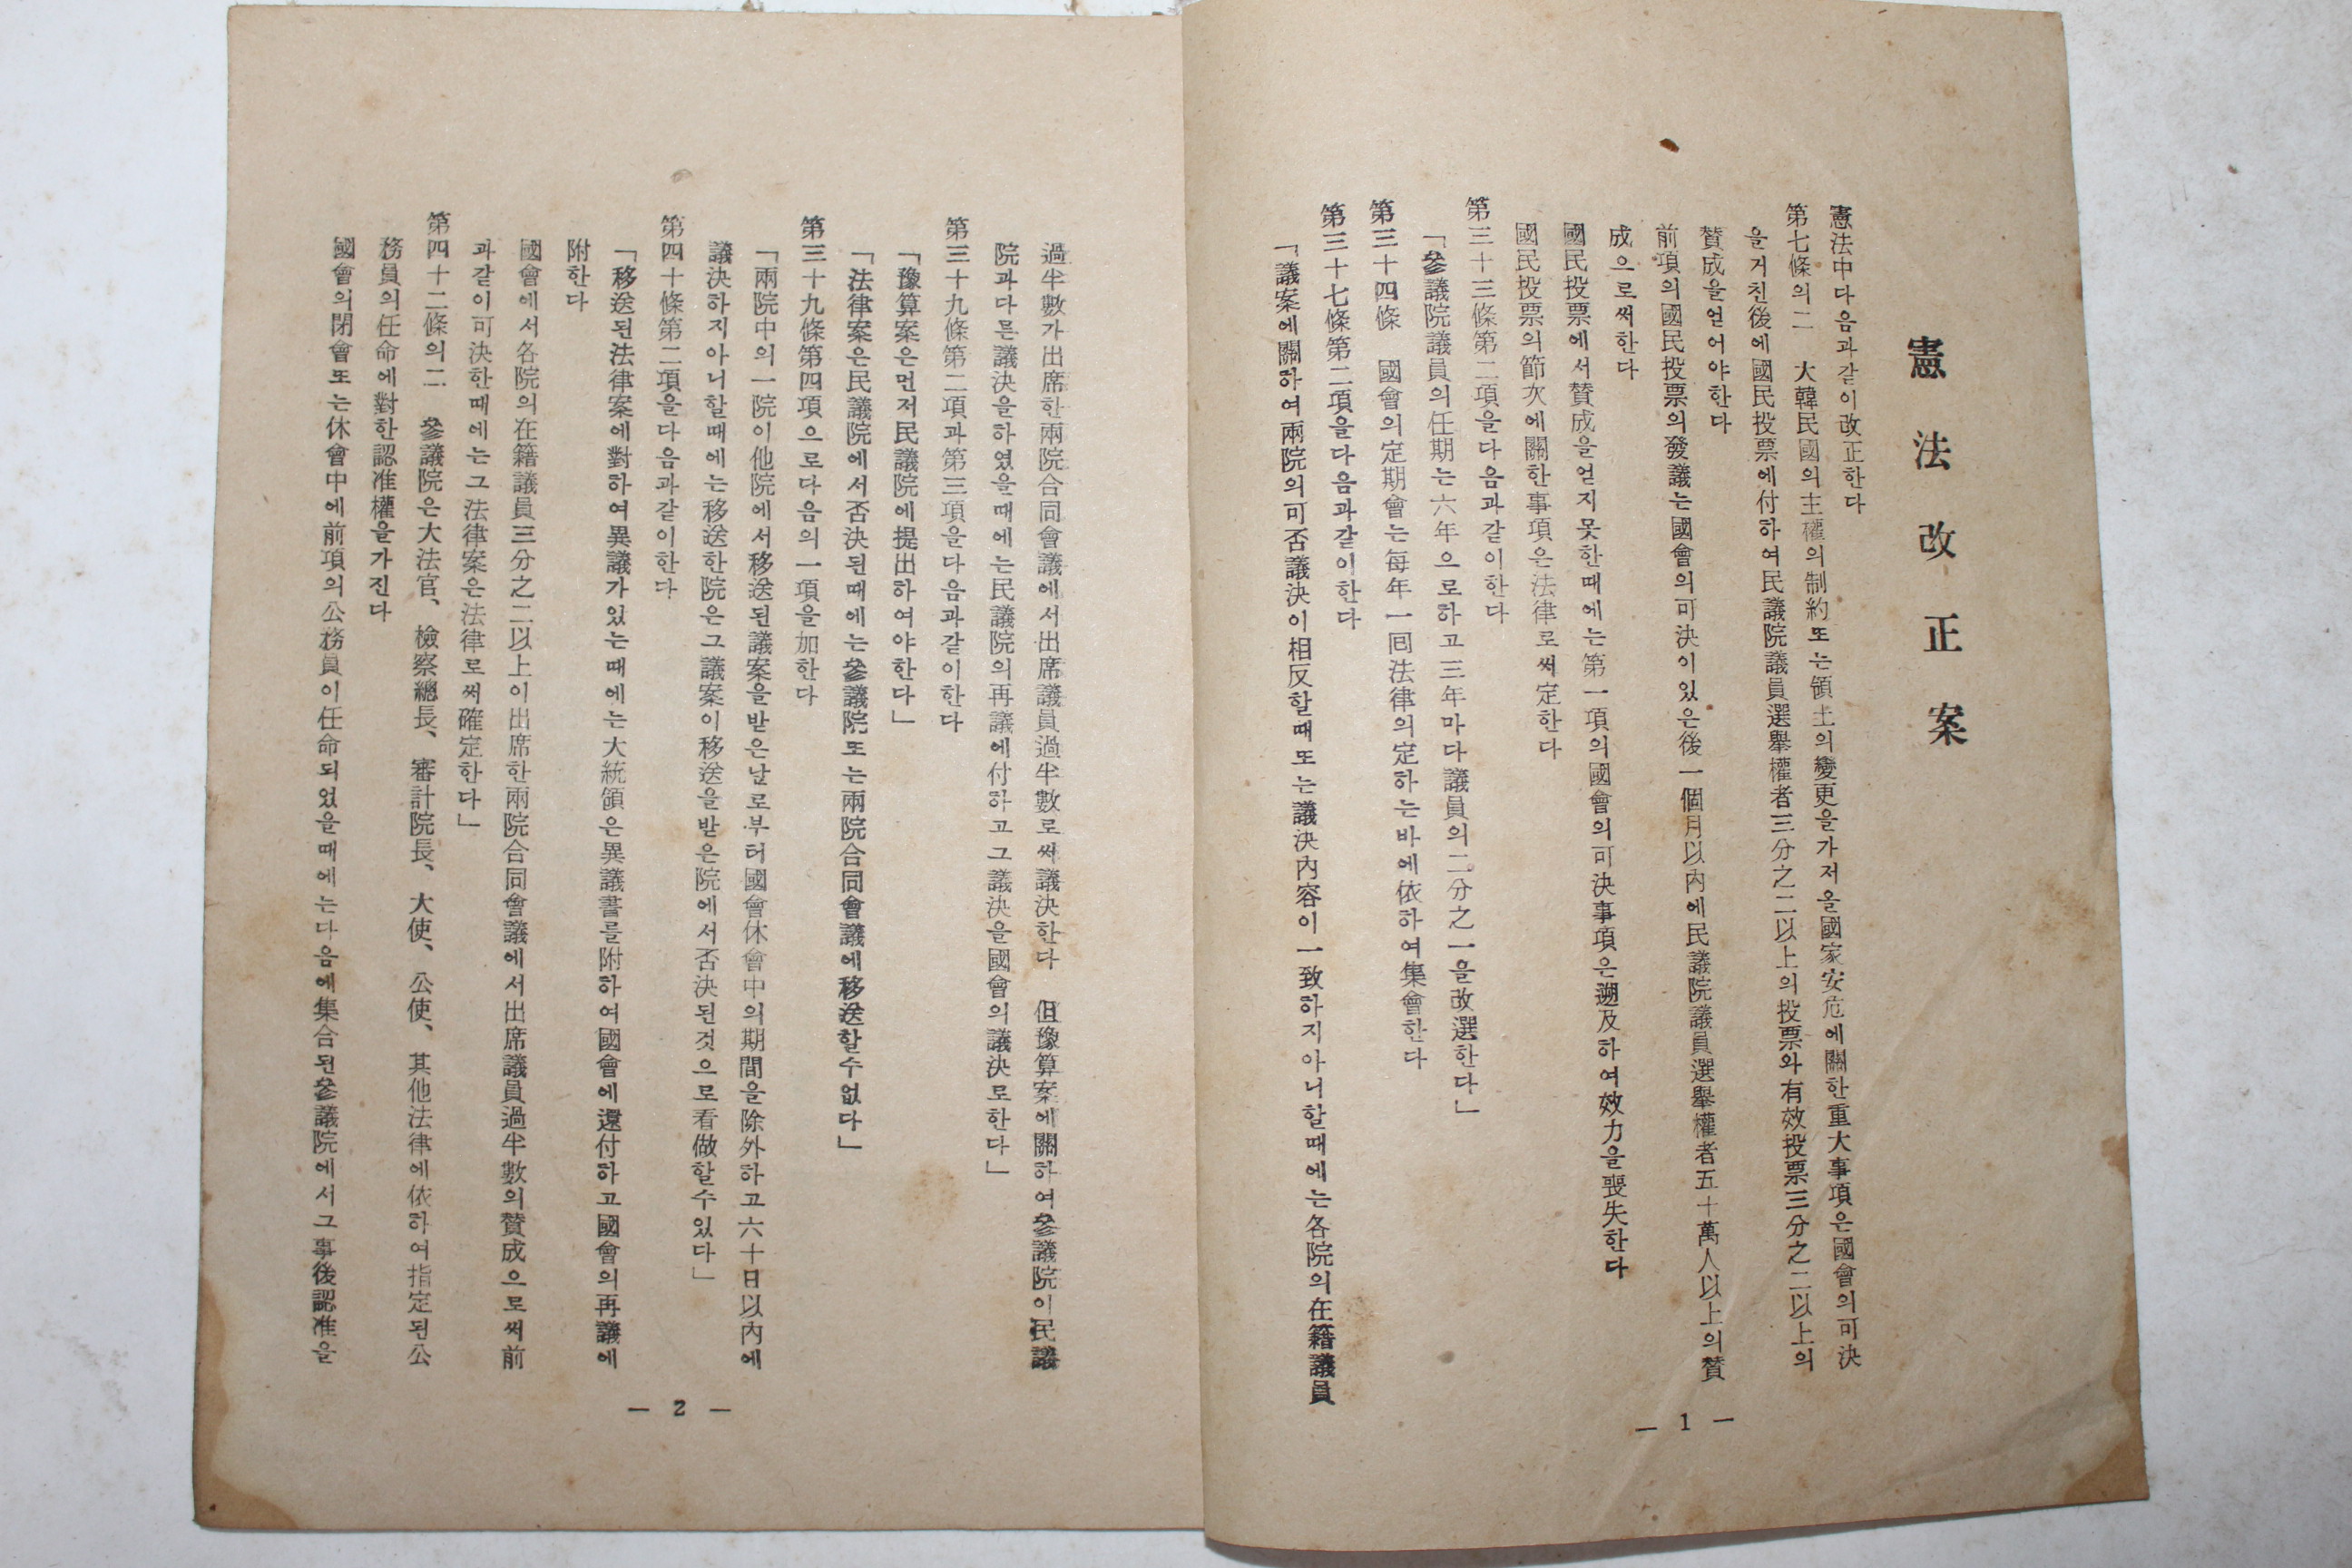 憲法改正案
憲法中다음과같이改正한다
第七條의二　大韓民國의主權의制約또는領土의變更을가져올國家安危에關한重大事項은國會의可決
을거친後에國民投票에付하여民議院議員選擧權者三分之二以上의投票와有效投票三分之二以上의
贊成을얻어야한다
前項의國民投票의發議는國會의可決이있은後一個月以內에民議院議員選擧權者五十萬人以上의贊
成으로써한다
國民投票에서贊成을얻지못한때에는第一項의國會의可決事項은遡及하여效力을喪失한다
國民投票의節次에關한事項은法律로써定한다
第三十三條第二項을다음과같이한다
「參議院議員의任期는六年으로하고三年마다議員의二分之一을改選한다」
第三十四條　國會의定期會는每年一回法律의定하는바에依하여集會한다
第三十七條第二項을다음과같이한다
「議案에關하여兩院의可否議決이相反할때또는議決內容이一致하지아니할때에는各院의在籍議員
— 1 —
過半數가出席한兩院合同會議에서出席議員過半數로써議決한다　但豫算案에關하여參議院이民議
院과다른議決을하였을때에는民議院의再議에付하고그議決을國會의議決로한다」
第三十九條第二項과第三項을다음과같이한다
「豫算案은먼저民議院에提出하여야한다」
「法律案은民議院에서否決된때에는參議院또는兩院合同會議에移送할수없다」
第三十九條第四項으로다음의一項을加한다
「兩院中의一院이他院에서移送된議案을받은날로부터國會休會中의期間을除外하고六十日以內에
議決하지아니할때에는移送한院은그議案이移送을받은院에서否決된것으로看做할수있다」
第四十條第二項을다음과같이한다
「移送된法律案에對하여異議가있는때에는大統領은異議書를附하여國會에還付하고國會의再議에
附한다
國會에서各院의在籍議員三分之二以上이出席한兩院合同會議에서出席議員過半數의贊成으로써前
과같이可決한때에는그法律案은法律로써確定한다」
第四十二條의二　參議院은大法官、檢察總長、審計院長、大使、公使、其他法律에依하여指定된公
務員의任命에對한認准權을가진다
國會의閉會또는休會中에前項의公務員이任命되었을때에는다음에集合된參議院에서그事後認准을
— 2 —